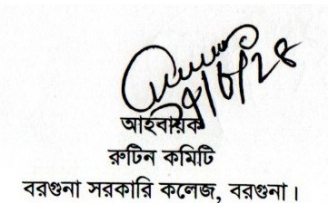 আহবায়ক
রুটিন কমিটি
বরগুনা সরকারি কলেজ, বরগুনা।